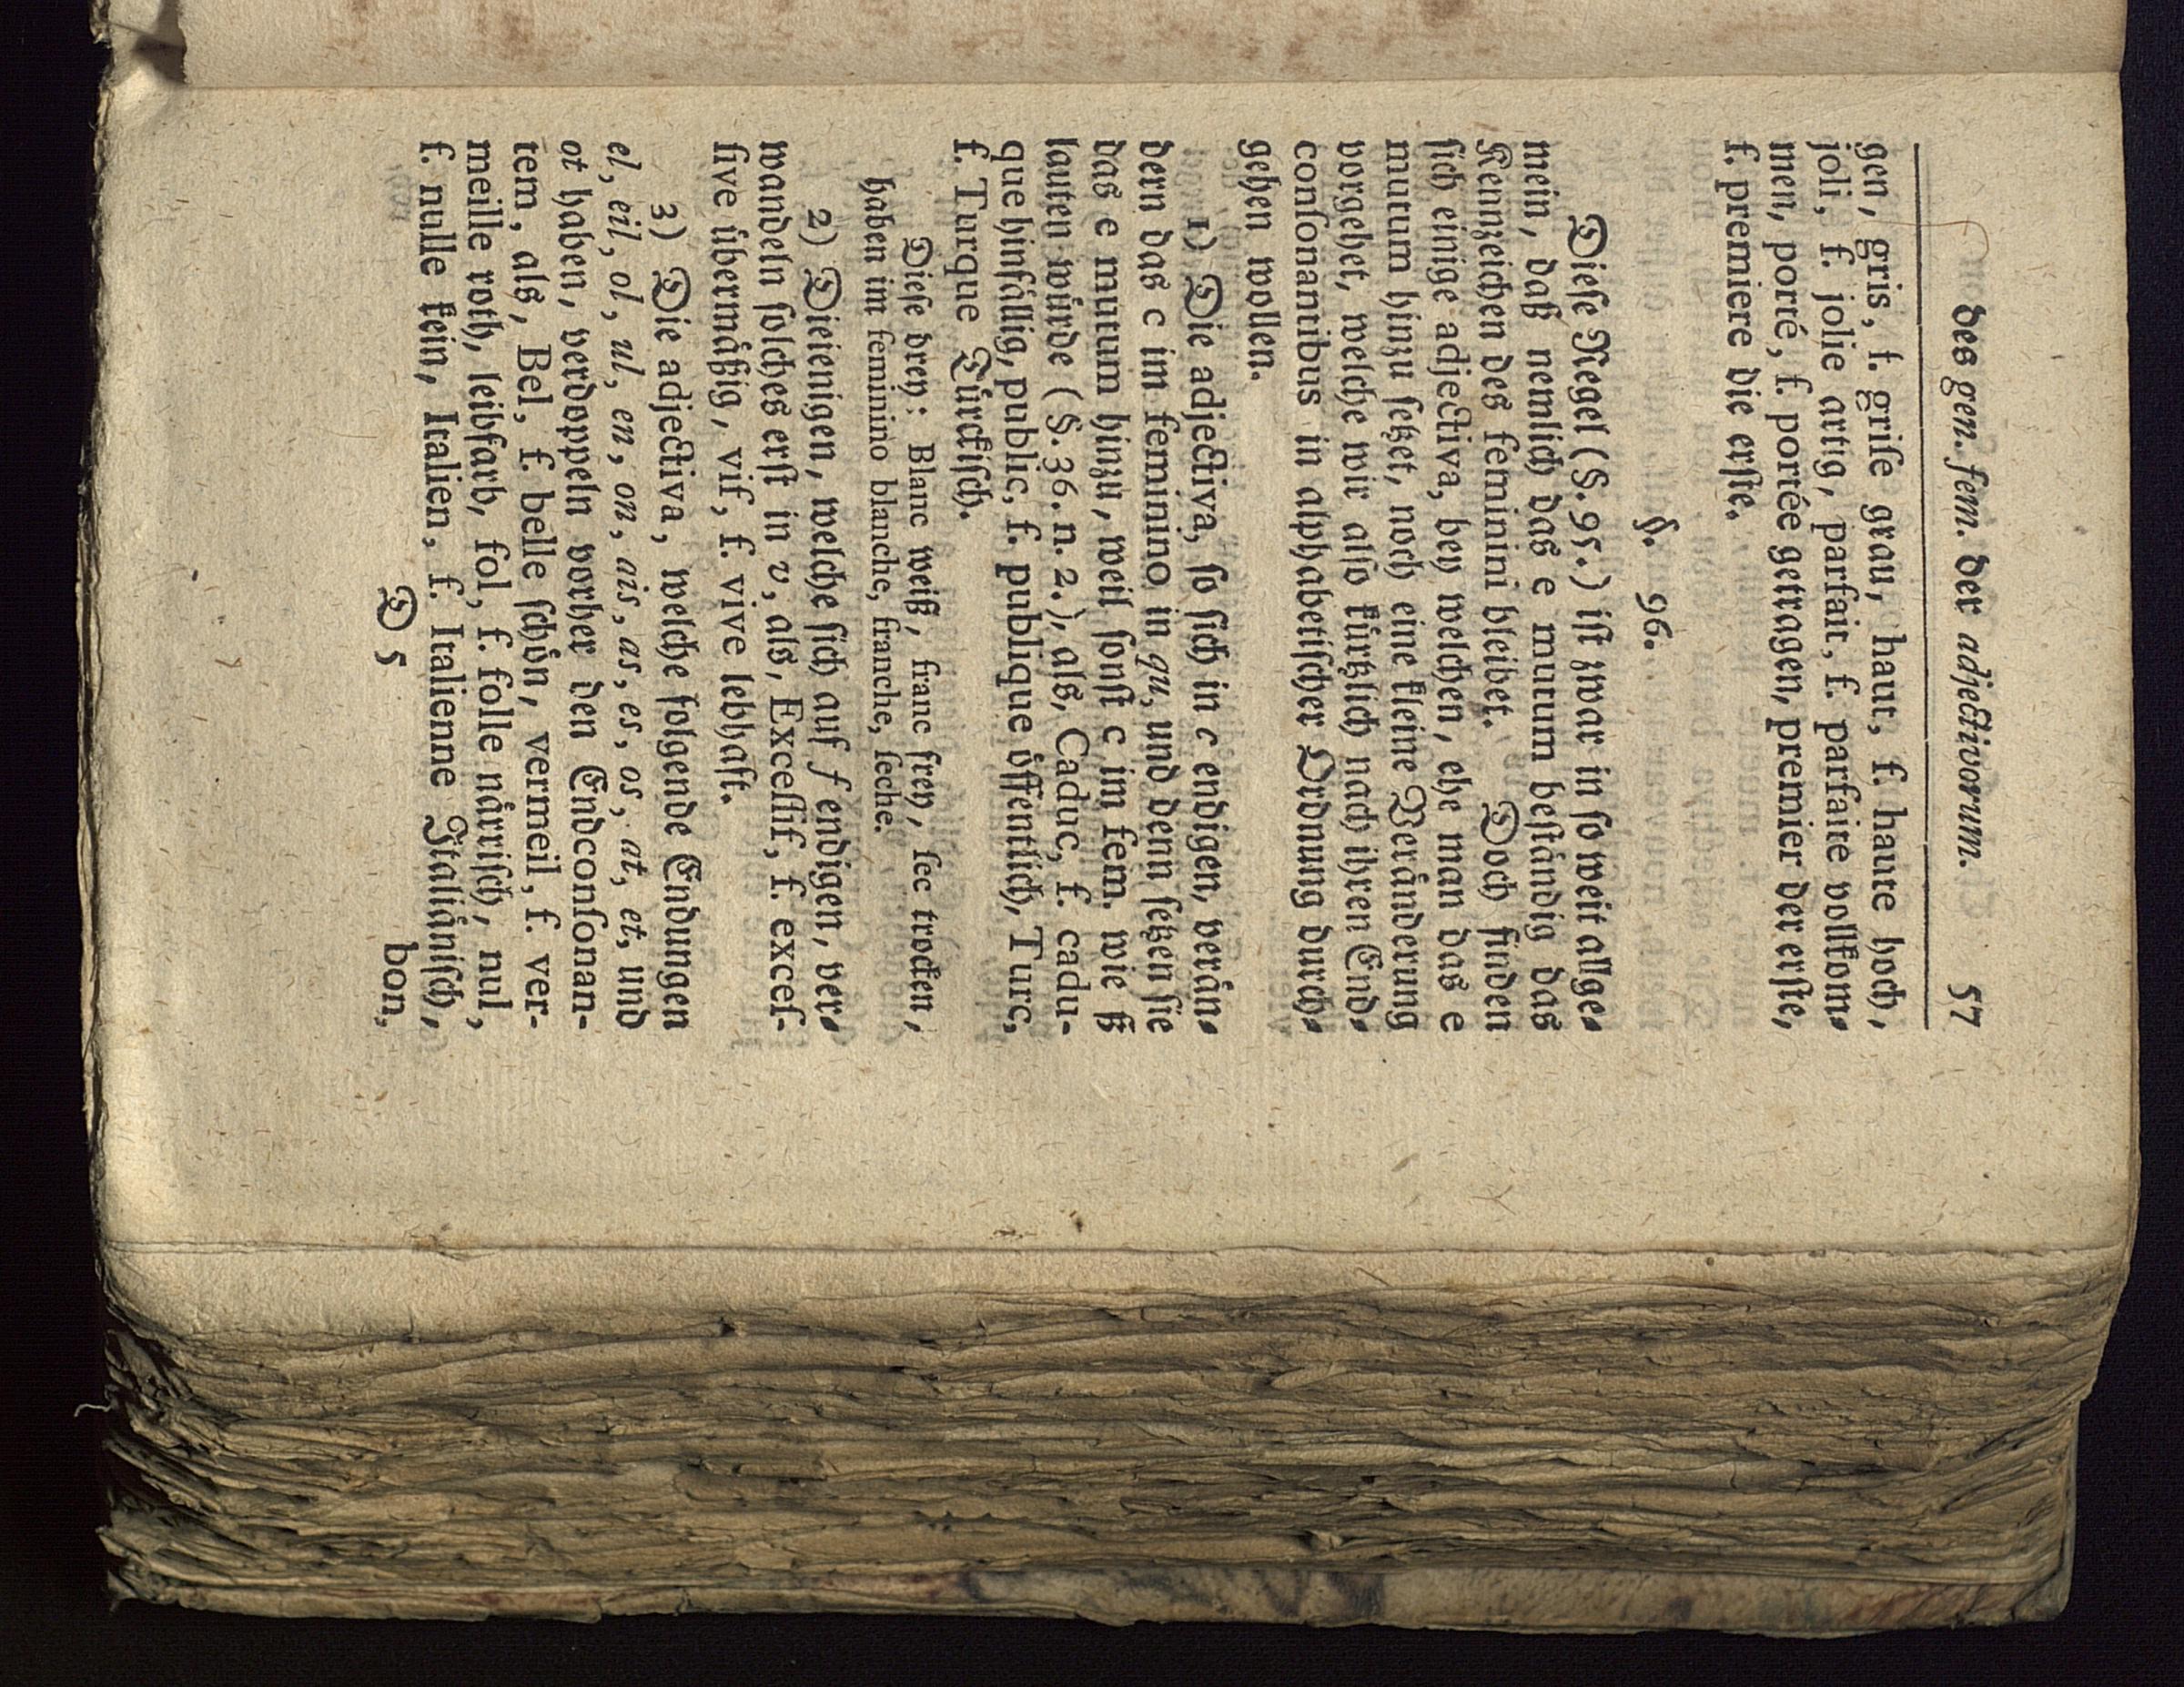 des gen. fem. der adjectivorum. 57
gen, gris, f. griſe grau, haut, f. haute hoch,
joli, f. jolie artig, parfait, f. parfaite vollkom⸗
men, porté, f. portée getragen, premier der erſte,
f. premiere die erſte.
§. 96.
Dieſe Regel (§. 95.) iſt zwar in ſo weit allge⸗
mein, daß nemlich das e mutum beſtändig das
Kennzeichen des feminini bleibet. Doch finden
ſich einige adjectiva, bey welchen, ehe man das e
mutum hinzu ſetzet, noch eine kleine Veränderung
vorgehet, welche wir alſo kürtzlich nach ihren End⸗
conſonantibus in alphabetiſcher Ordnung durch⸗
gehen wollen.
1) Die adjectiva, ſo ſich in c endigen, verän⸗
dern das c im feminino in qu, und denn ſetzen ſie
das e mutum hinzu, weil ſonſt c im fem. wie ß
lauten würde (§. 36. n. 2.), als, Caduc, f. cadu-
que hinfällig, public, f. publique öffentlich, Turc,
f. Turque Türckiſch.
Dieſe drey: Blanc weiß, franc frey, ſec trocken,
haben im feminino blanche, franche, ſeche.
2) Dieienigen, welche ſich auf f endigen, ver⸗
wandeln ſolches erſt in v, als, Exceſſif, f. exceſ-
ſive übermäßig, vif, f. vive lebhaft.
3) Die adjectiva, welche folgende Endungen
el, eil, ol, ul, en, on, ais, as, es, os, at, et, und
ot haben, verdoppeln vorher den Endconſonan-
tem, als, Bel, f. belle ſchön, vermeil, f. ver-
meille roth, leibfarb, fol, f. folle närriſch, nul,
f. nulle kein, Italien, f. Italienne Italiäniſch,
D 5 bon,